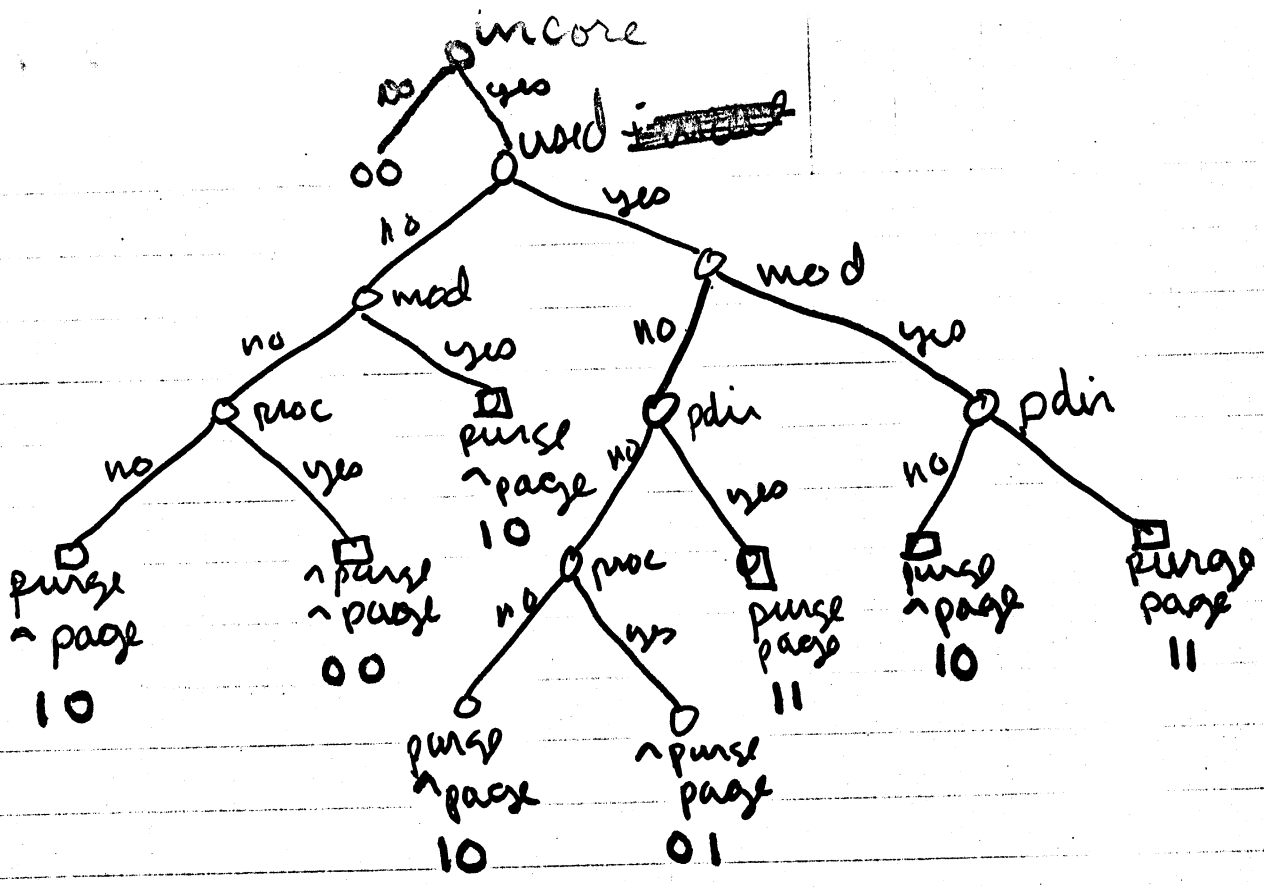 incore
no yes
00
used
no yes
mod
mod
no yes
no yes
proc
purge
^page
10
pdir
pdir
no yes
no yes
no
purge
^ page
10
^purge
^page
00
proc
purge
page
11
purge
^page
10
purge
page
11
no yes
purge
^page
10
^purge
page
01